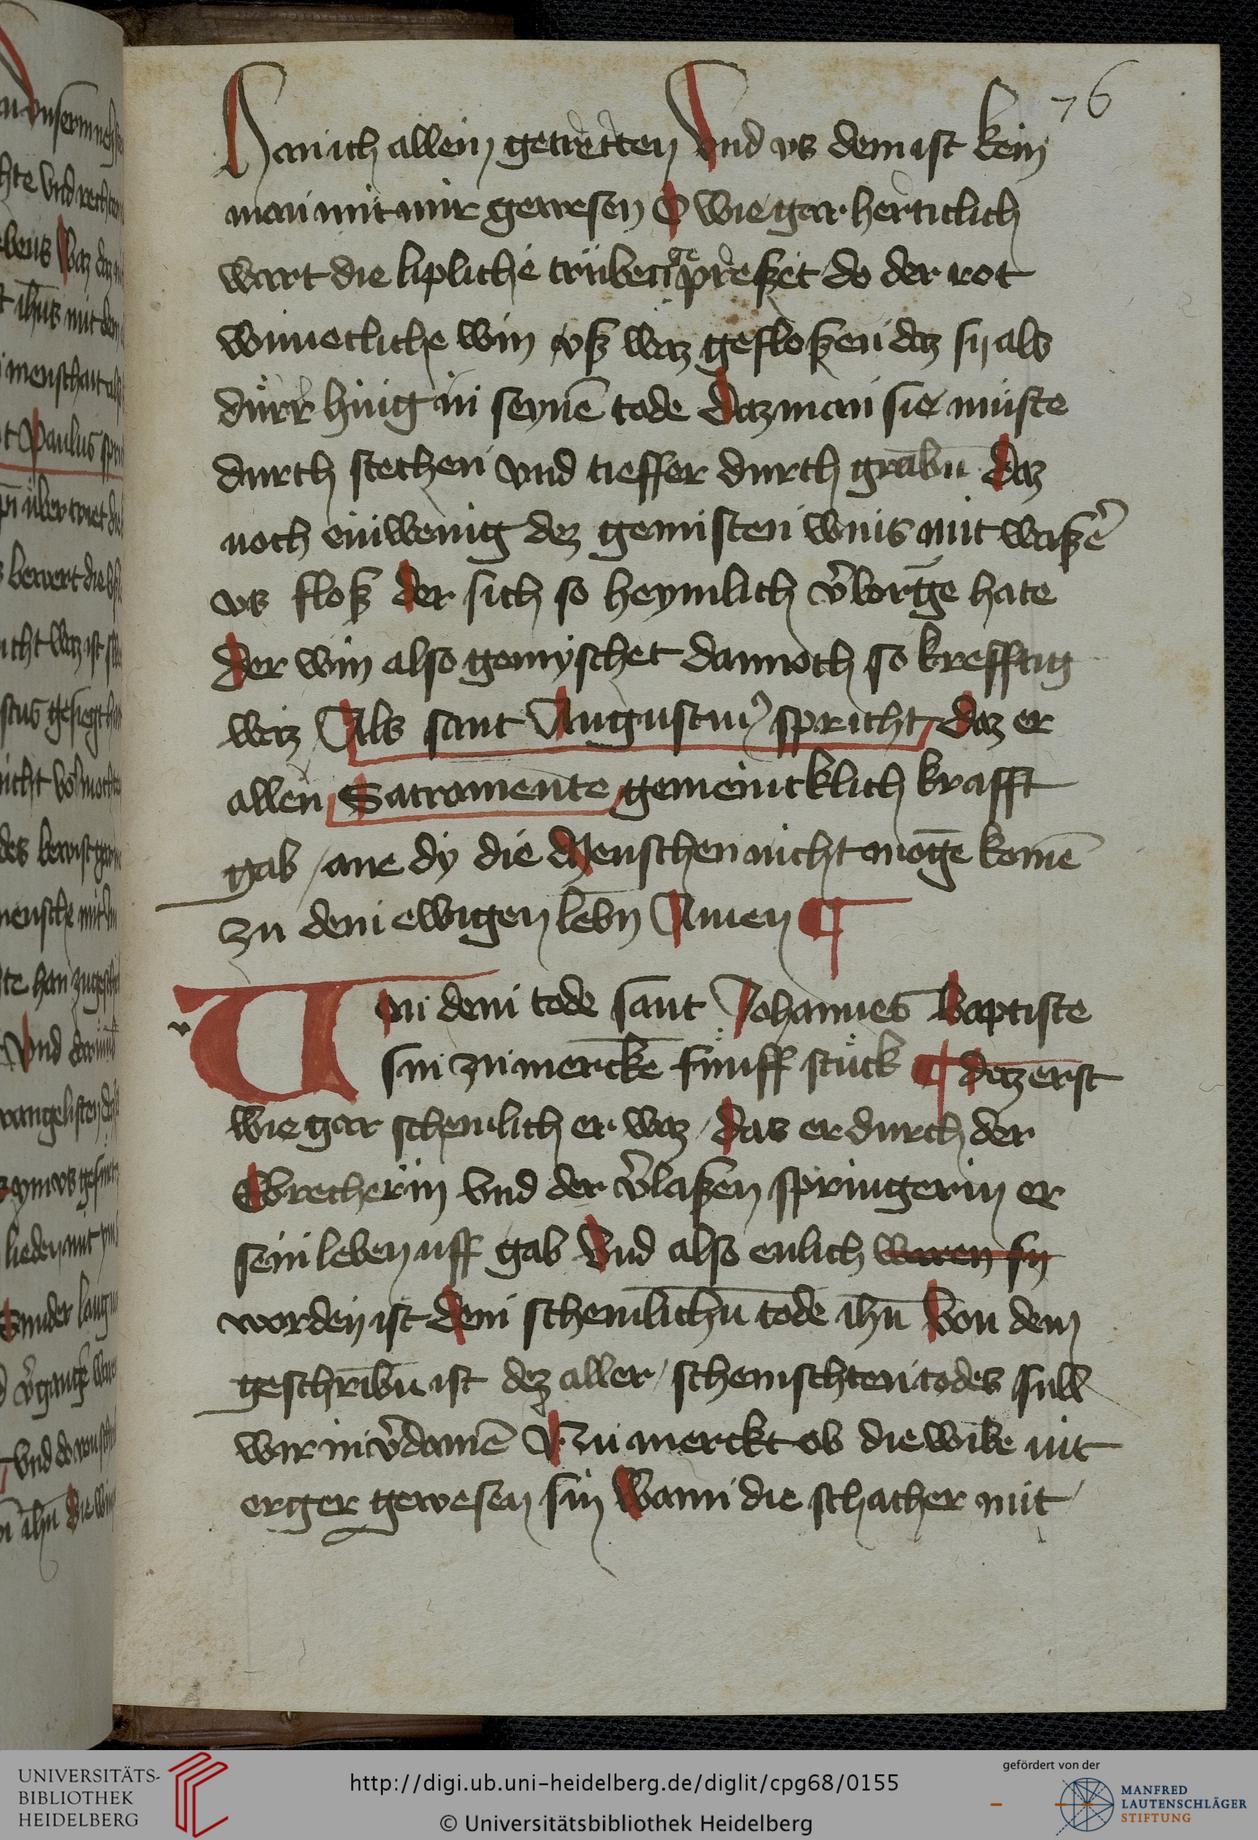 76
Han ich allein getretten Vnd vs dem ist kein
man mit mir gewesen O wie gar herticlich
wart die lipliche trüben gepreszet do der rot
winnecliche win vsz waz gefloszen daz sy als
dürr hing in seynē tode Daz man sie müste
durch stechen vnd tieffer durch grabn̄ Daz
noch ein wenig dez gemisten wins mit waszer̄
vs flosz der sich so heymlich v̓borgē hate
Der win also gemyschet dannoch so krefftig
waz Als sant Augustin⁹ spricht Daz er
allen Sacramente gemeincklich krafft
gab / ane dy die Menschen nicht mogē komē
zu dem ewigen lebn̄ Amen ¶
v
Uon dem tode sant Johannes Baptiste
sin zu merckē fünff stück ¶ Daz erst
wie gar schemlich er waz / Das er durch der
Ebrecherin vnd der v̓laszen springerin er
sein leben uff gab Vnd also enlich waren sy
worden ist dem schemlichn̄ tode ihn̄ Von dem
geschribn̄ ist dez aller / schemschten todes sull
wir in v̓damē Nu merckt ob die wibe nit
erger gewesen sin Wann die schacher mit
UNIVERSITÄTS-
BIBLIOTHEK
HEIDELBERG
http://digi.ub.uni-heidelberg.de/diglit/cpg68/0155
© Universitätsbibliothek Heidelberg
gefördert von der
MANFRED
LAUTENSCHLÄGER
STIFTUNG